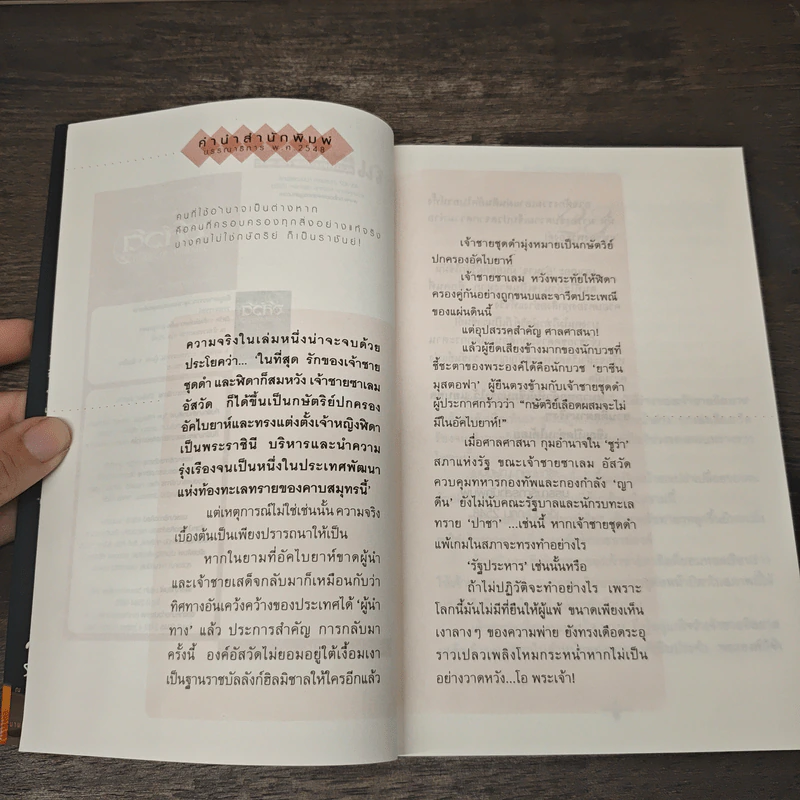 คำนำสำนักพิมพ์
บรรณาธิการ พ.ศ. 2548
คนที่ใช้อำนาจเป็นต่างหาก
คือคนที่ครอบครองทุกสิ่งอย่างแท้จริง
บางคนไม่ใช่กษัตริย์ ก็เป็นราชันย์!
ความจริงในเล่มหนึ่งน่าจะจบด้วย
ประโยคว่า... ‘ในที่สุด รักของเจ้าชาย
ชุดดำ และฟิดาก็สมหวัง เจ้าชายซาเลม
อัสวัด ก็ได้ขึ้นเป็นกษัตริย์ปกครอง
อัคไบยาห์และทรงแต่งตั้งเจ้าหญิงฟิดา
เป็นพระราชินี บริหารและนำความ
รุ่งเรืองจนเป็นหนึ่งในประเทศพัฒนา
แห่งท้องทะเลทรายของคาบสมุทรนี้’
แต่เหตุการณ์ไม่ใช่เช่นนั้น ความจริง
เบื้องต้นเป็นเพียงปรารถนาให้เป็น
หากในยามที่อัคไบยาห์ขาดผู้นำ
และเจ้าชายเสด็จกลับมาก็เหมือนกับว่า
ทิศทางอันเคว้งคว้างของประเทศได้ ‘ผู้นำ
ทาง’ แล้ว ประการสำคัญ การกลับมา
ครั้งนี้ องค์อัสวัดไม่ยอมอยู่ใต้เงื้อมเงา
เป็นฐานราชบัลลังก์ฮิลมิซาลให้ใครอีกแล้ว
เจ้าชายชุดดำมุ่งหมายเป็นกษัตริย์
ปกครองอัคไบยาห์
เจ้าชายซาเลม หวังพระทัยให้ฟิดา
ครองคู่กันอย่างถูกขนบและจารีตประเพณี
ของแผ่นดินนี้
แต่อุปสรรคสำคัญ ศาลศาสนา!
แล้วผู้ยึดเสียงข้างมากของนักบวชที่
ชี้ชะตาของพระองค์ได้คือนักบวช ‘ยาซีน
มุสตอฟา’ ผู้ยืนตรงข้ามกับเจ้าชายชุดดำ
ผู้ประกาศกร้าวว่า “กษัตริย์เลือดผสมจะไม่
มีในอัคไบยาห์!”
เมื่อศาลศาสนา กุมอำนาจใน ‘ชูร่า’
สภาแห่งรัฐ ขณะเจ้าชายซาเลม อัสวัด
ควบคุมทหารกองทัพและกองกำลัง ‘ญา
ดีน’ ยังไม่นับคณะรัฐบาลและนักรบทะเล
ทราย ‘ปาชา’ ...เช่นนี้ หากเจ้าชายชุดดำ
แพ้เกมในสภาจะทรงทำอย่างไร
‘รัฐประหาร’ เช่นนั้นหรือ
ถ้าไม่ปฏิวัติจะทำอย่างไร เพราะ
โลกนี้มันไม่มีที่ยืนให้ผู้แพ้ ขนาดเพียงเห็น
เงาลางๆ ของความพ่าย ยังทรงเดือดระอุ
ราวเปลวเพลิงโหมกระหน่ำหากไม่เป็น
อย่างวาดหวัง...โอ พระเจ้า!